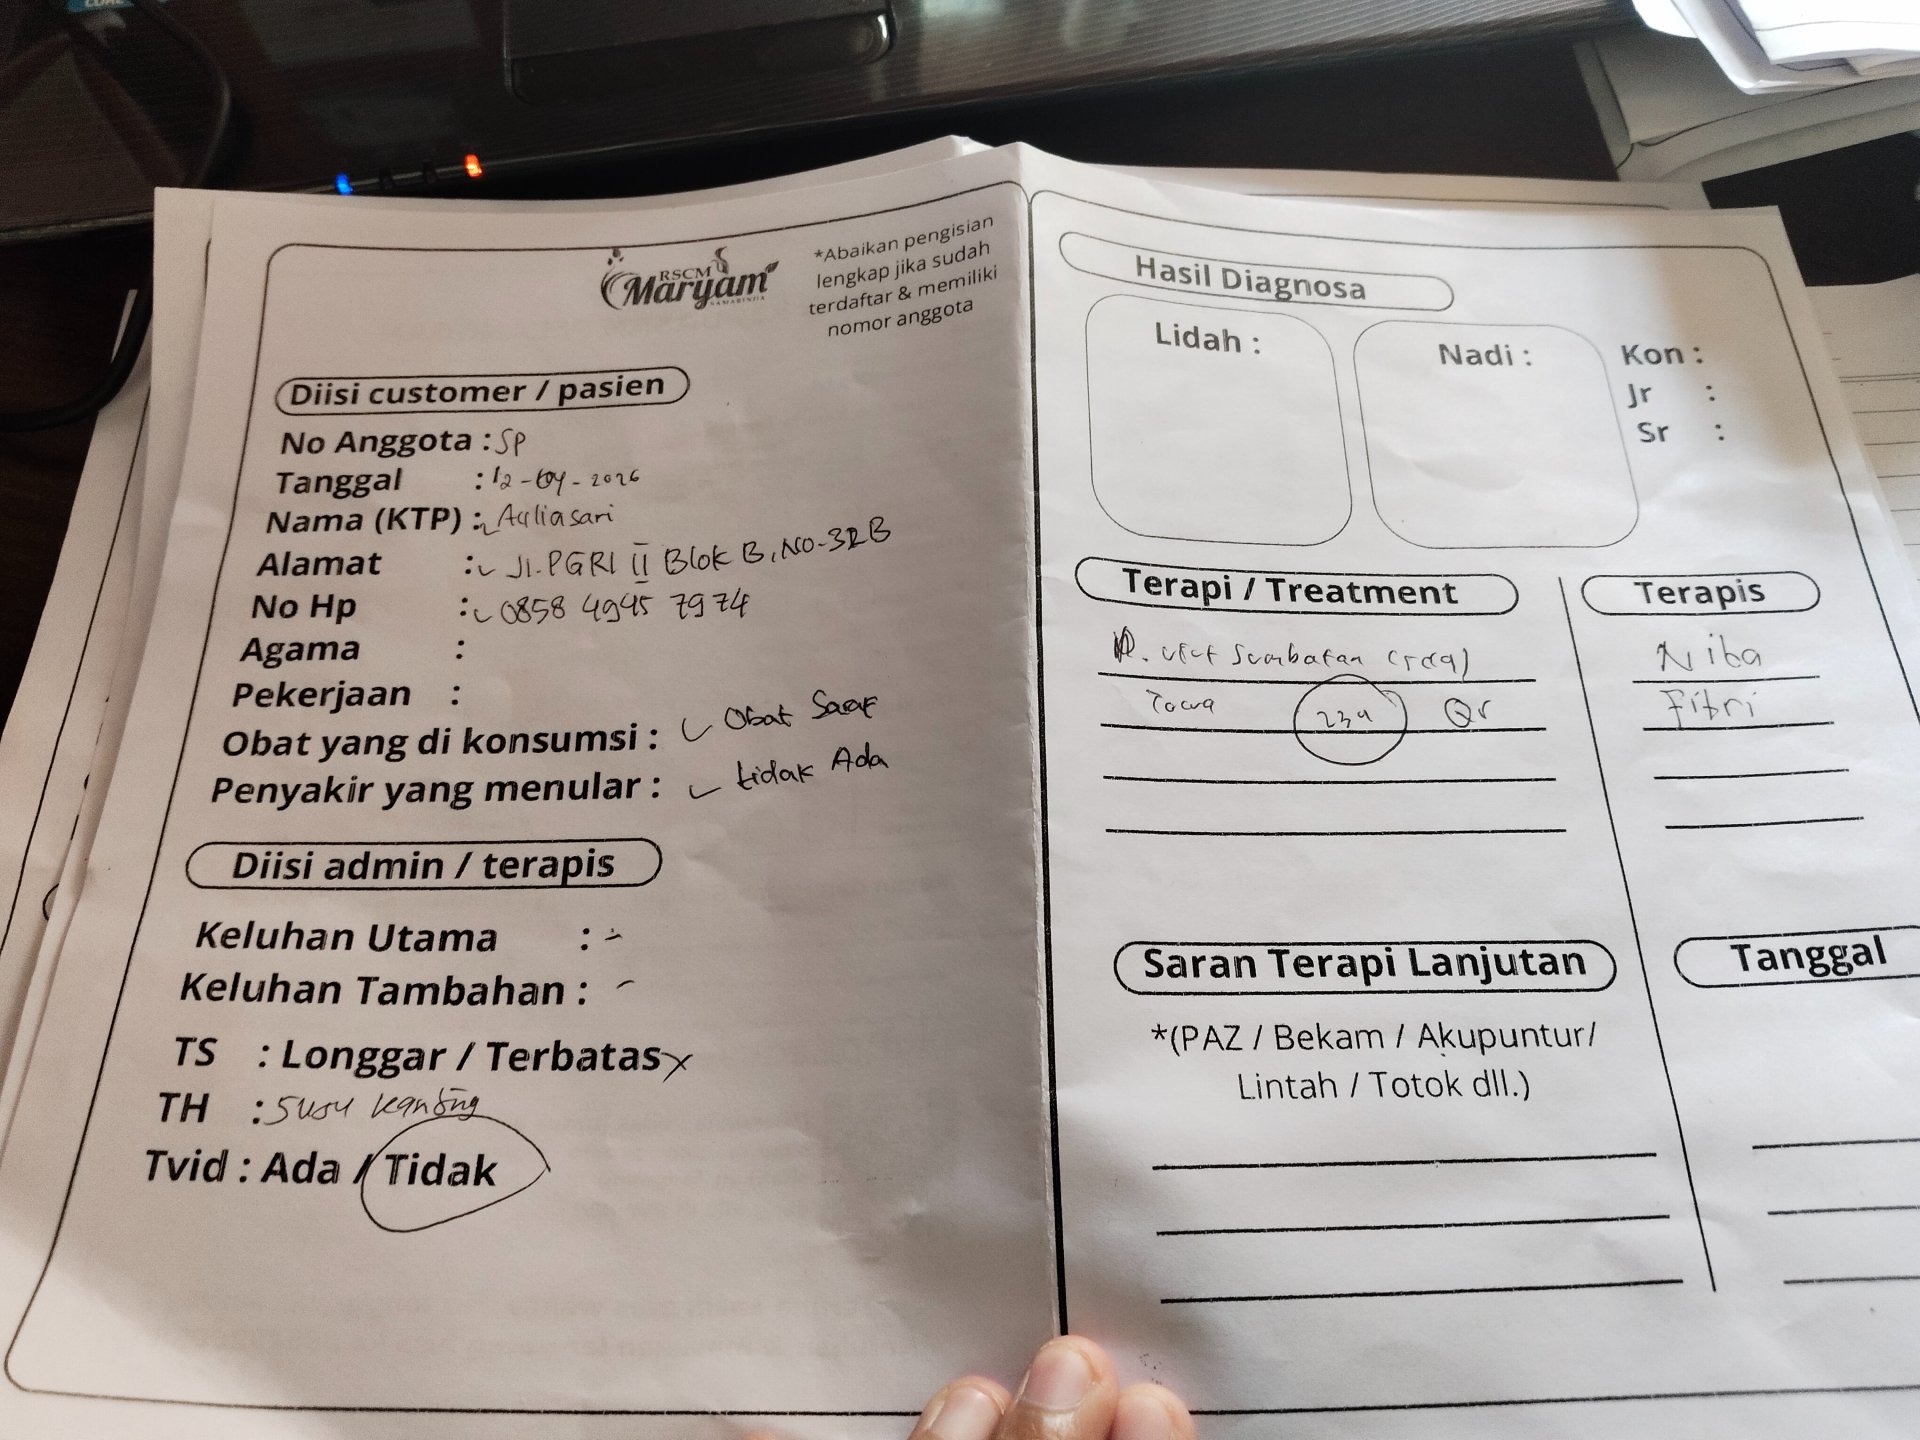 RSCM
Maryam
SAMARINDA
*Abaikan pengisian
lengkap jika sudah
terdaftar & memiliki
nomor anggota
Diisi customer / pasien
No Anggota : SP
Tanggal : 12-04-2026
Nama (KTP) : Auliasari
Alamat : Jl. PGRI II Blok B, NO-32B
No Hp : 0858 4945 7974
Agama :
Pekerjaan :
Obat yang di konsumsi : Obat Saraf
Penyakir yang menular : tidak Ada
Diisi admin / terapis
Keluhan Utama : -
Keluhan Tambahan : -
TS : Longgar / Terbatas x
TH : Susu
Tvid : Ada / Tidak
Hasil Diagnosa
Lidah :
Nadi :
Kon :
Jr :
Sr :
Terapi / Treatment
Terapis
Sumbatan
Niba
234 Qr
Fitri
Saran Terapi Lanjutan
Tanggal
*(PAZ / Bekam / Akupuntur/
Lintah / Totok dll.)